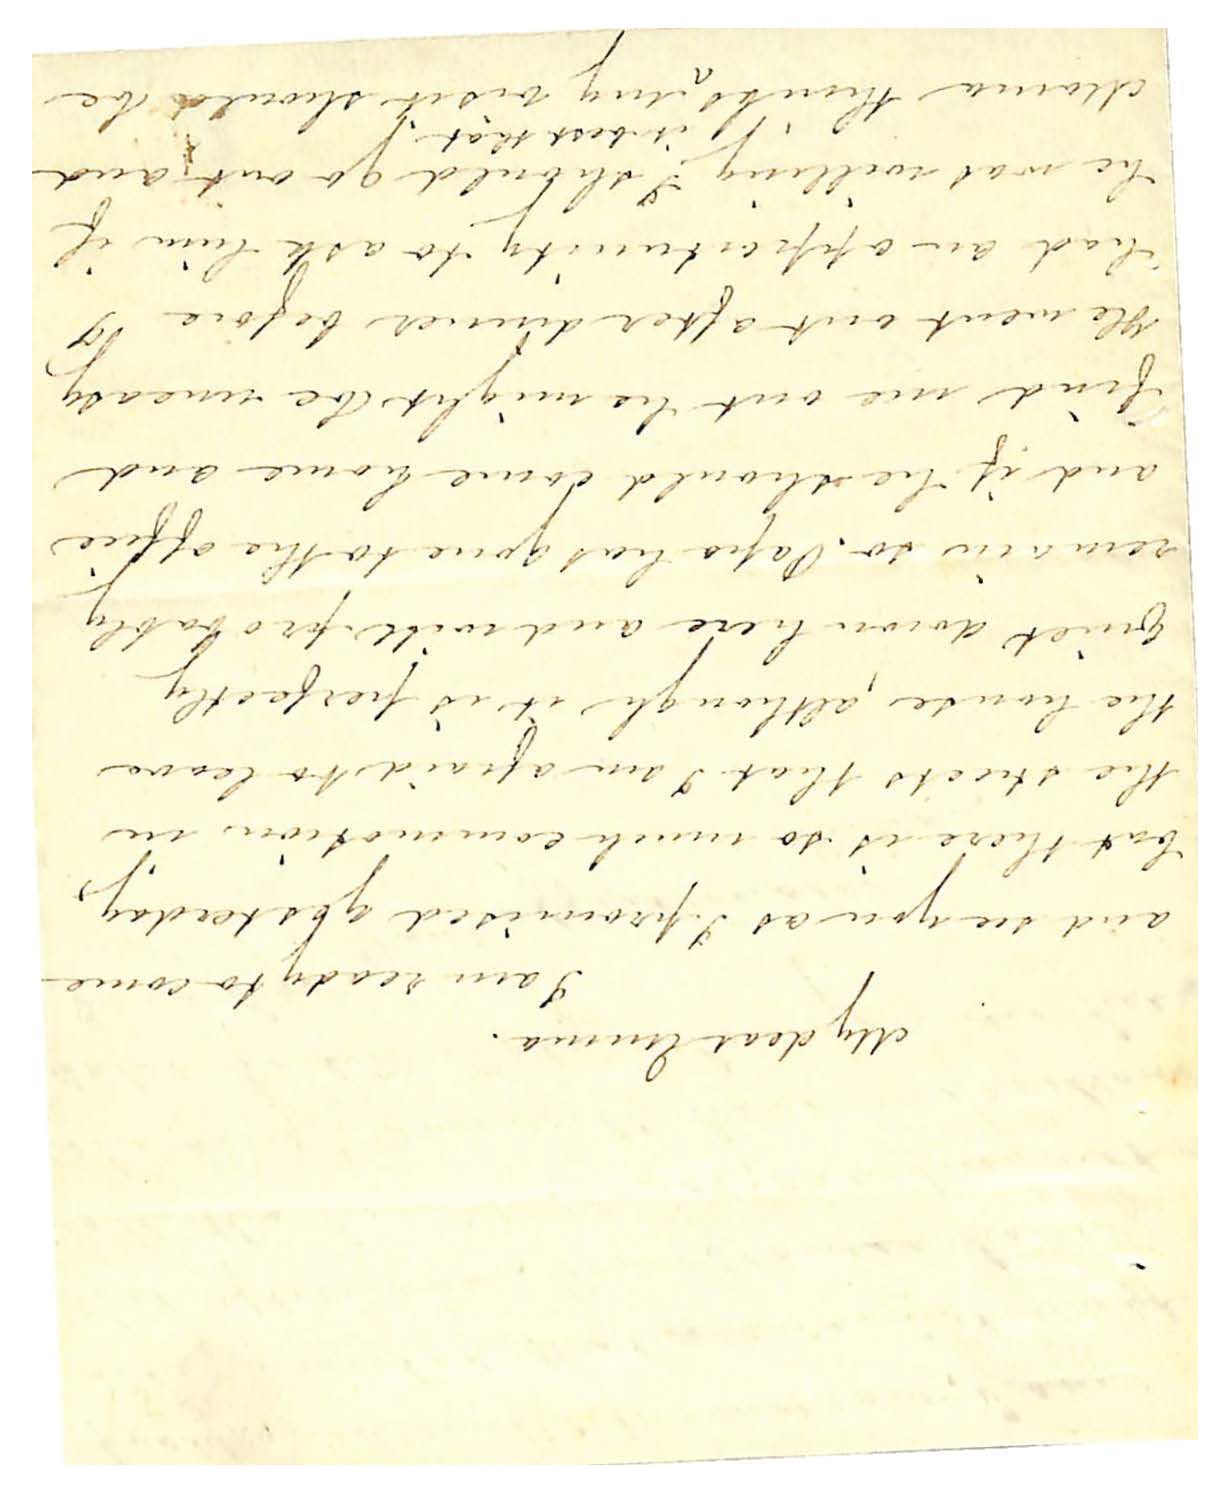 My dear Emma.
I am ready to come
and see you as I promised yesterday,
but there is so much commotion in
the streets that I am afraid to leave
the house, although it is perfectly
quiet down here and will probably
remain so. Papa has gone to the office
and if he should come home and
find me out he might be uneasy
He went out after dinner before I
had an opportunity to ask him if
he was willing I should go out, and
it best that
Mama thinks ^ my visit should be